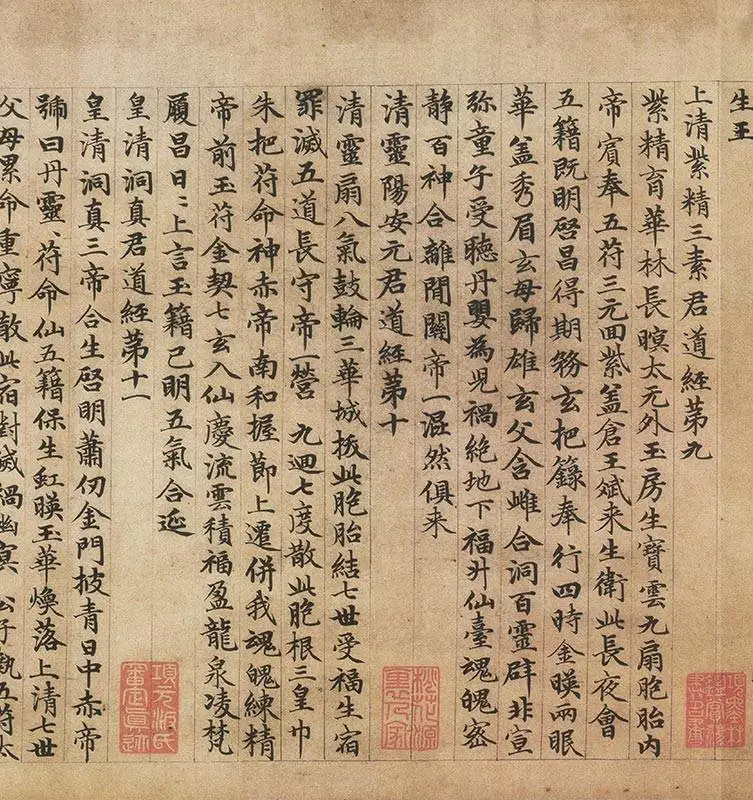 生王
上清紫精三素君道經苐九
紫精育華林長暝太无外玉房生寶雲九扇胞胎内
帝賔奉五苻三元回紫盖倉王斌来生衛此長夜會
五籍既明啓昌得期務玄把籙奉行四時金暎兩眠
華盖秀眉玄母歸雄玄父含雌合洞百靈辟非宣
弥童子受聴丹嬰為児禍絶地下福升仙臺魂魄密
静百神合離閒關帝一混然俱来
清靈陽安元君道經苐十
清靈扇八氣鼓輪三華城拔此胞胎結七世受福生宿
罪滅五道長守帝一營 九迴七度散此胞根三皇巾
朱把苻命神赤帝南和握莭上遷併我魂魄練精
帝前玉苻金契七玄入仙慶流雲積福盈龍泉凌梵
履昌日〻上言玉籍已明五氣合延
皇清洞真君道經苐十一
皇清洞真三帝合生啓明蕭仞金門披青日中赤帝
號曰丹靈〻苻命仙五籍保生虹暎玉華煥落上清七世
父母累命重寧散此宿對滅禍幽冥 公子執五苻太
桃花源
裏人家
項元汴氏
審定真迹